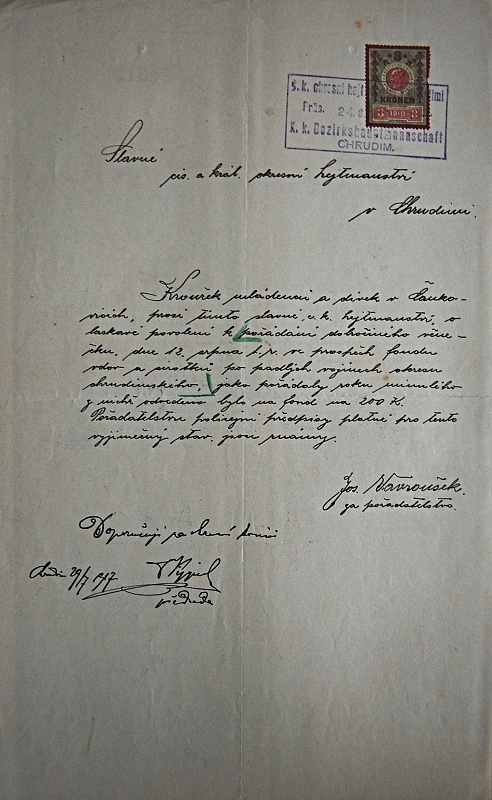 c. k. okresní hejt
Präs. 24.
K. k. Bezirkshauptmannschaft
CHRUDIM.
8
KRONEN
8 1910 8
Slavné
cís. a král. okresní hejtmanství
v Chrudimi.
Kroužek mládenců a dívek v
vicích, prosí tímto slavné c. k. hejtmanství, o
laskavé povolení k pořádání dobročinného věne-
čku, dne 12. srpna t. r. ve prospěch fondu
vdov a sirotků po padlých vojínech okresu
chrudimského, jako pořádaly roku minulého
z nichž odvedeno bylo na fond na 200 K.
Pořadatelstvu policejní předpisy platné pro tento
vyjímečný stav, jsou známy.
Jos. Vavroušek.
za pořadatelstvo.
Doporučuji
29/7 1917
předseda